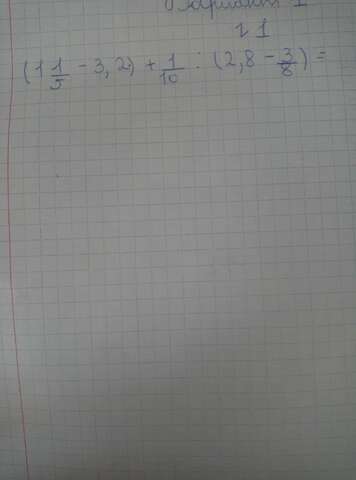 Вариант 1
№1
(1 1/5 - 3,2) + 1/10 : (2,8 - 3/8) =